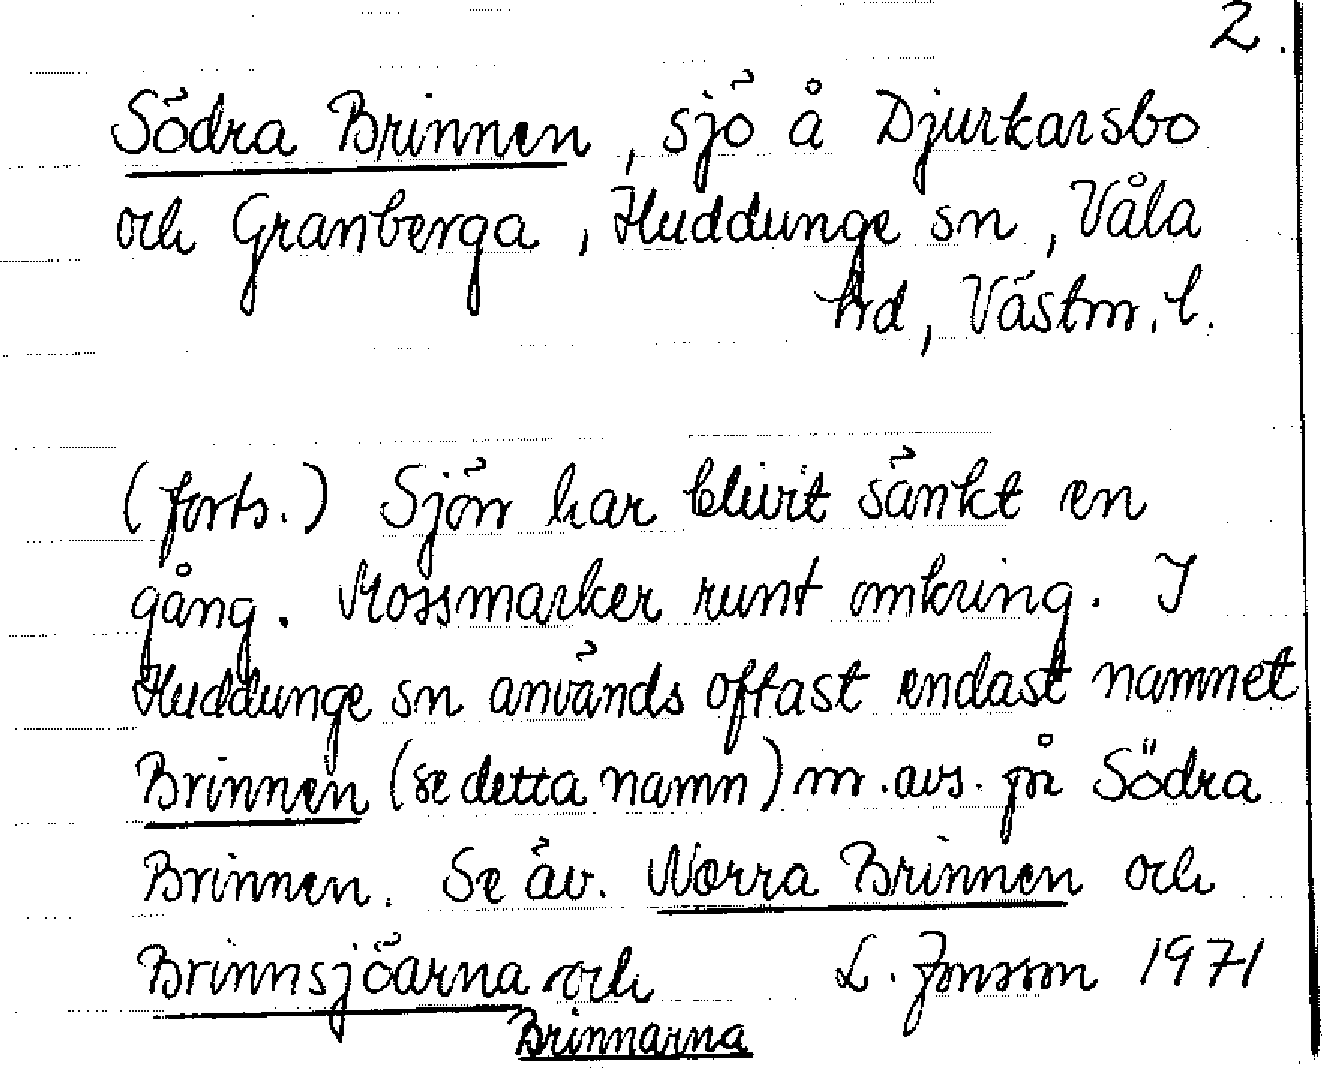 2.
Södra Brinnen, sjö å Djurkarsbo
och Granberga, Huddunge sn, Våla
hd, Västm. l.
(forts.) Sjön har blivit sänkt en
gång. Mossmarker runt omkring. I
Huddunge sn används oftast endast namnet
Brinnen (se detta namn) m. avs. på Södra
Brinnen. Se äv. Norra Brinnen och
Brinnsjöarna och L. Jonsson 1971
Brinnarna